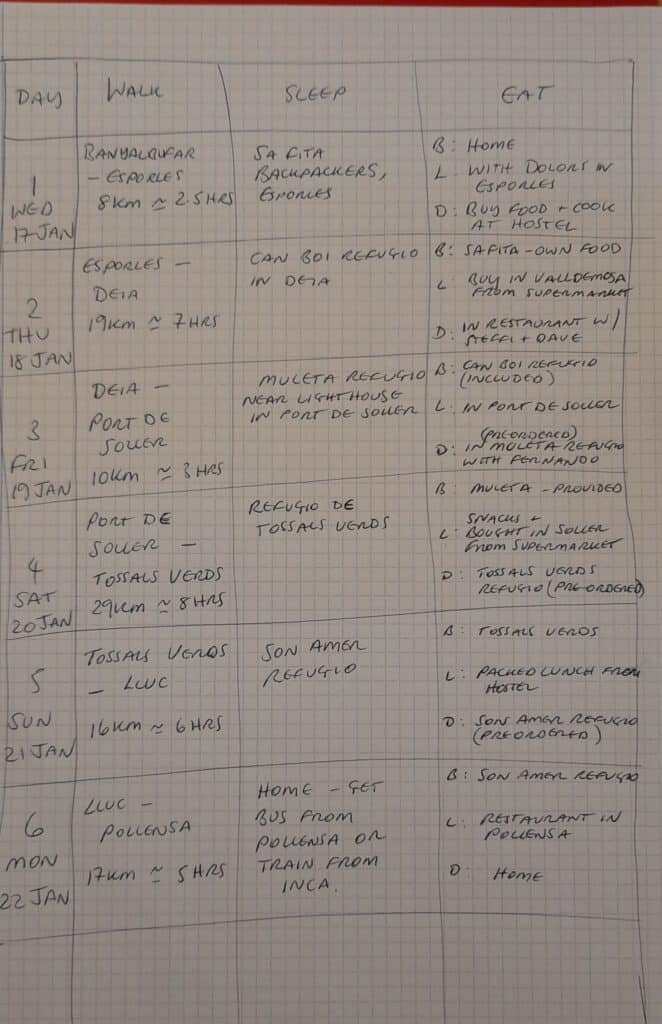 DAY WALK SLEEP EAT
1
WED
17 JAN
BANYALBUFAR
- ESPORLES
8KM ≃ 2.5HRS
SA FITA
BACKPACKERS,
ESPORLES
B: HOME
L: WITH DOLORS IN
ESPORLES
D: BUY FOOD + COOK
AT HOSTEL
2
THU
18 JAN
ESPORLES -
DEIA
19KM ≃ 7 HRS
CAN BOI REFUGIO
IN DEIA
B: SAFITA - OWN FOOD
L: BUY IN VALLDEMOSA
FROM SUPERMARKET
D: IN RESTAURANT W/
STEFFI + DAVE
3
FRI
19 JAN
DEIA -
PORT DE
SOLLER
10KM ≃ 3HRS
MULETA REFUGIO
NEAR LIGHTHOUSE
IN PORT DE SOLLER
B: CAN BOI REFUGIO
(INCLUDED)
L: IN PORT DE SOLLER
(PREORDERED)
D: IN MULETA REFUGIO
WITH FERNANDO
4
SAT
20 JAN
PORT DE
SOLLER -
TOSSALS VERDS
29KM ≃ 8HRS
REFUGIO DE
TOSSALS VERDS
B MULETA - PROVIDED
SNACKS +
L: BOUGHT IN SOLLER
FROM SUPERMARKET
D: TOSSALS VERDS
REFUGIO (PREORDERED)
5
SUN
21 JAN
TOSSALS VERDS
- LLUC
16KM ≃ 6HRS
SON AMER
REFUGIO
B: TOSSALS VERDS
L: PACKED LUNCH FROM
HOSTEL
D: SON AMER REFUGIO
(PREORDERED)
6
MON
22 JAN
LLUC -
POLLENSA
17KM ≃ 5HRS
HOME - GET
BUS FROM
POLLENSA OR
TRAIN FROM
INCA.
B: SON AMER REFUGIO
L: RESTAURANT IN
POLLENSA
D: HOME